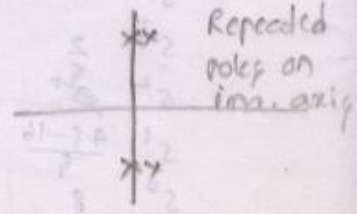 Repeated
poles on
ima. axis